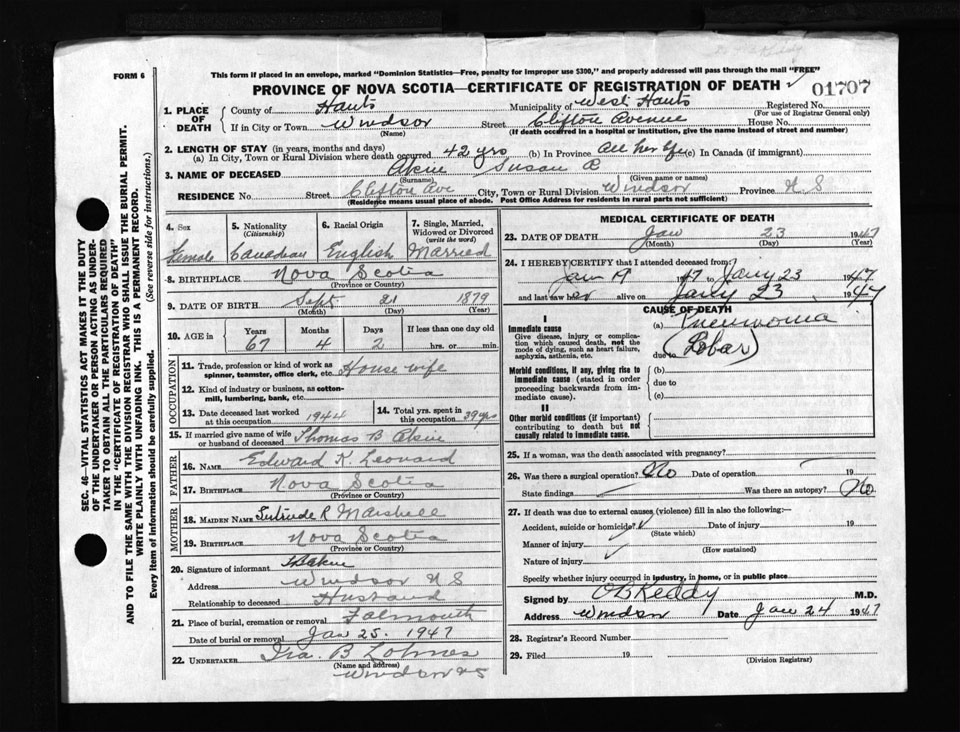 FORM 6
This form if placed in an envelope, marked "Dominion Statistics—Free, penalty for improper use $300," and properly addressed will pass through the mail "FREE"
PROVINCE OF NOVA SCOTIA—CERTIFICATE OF REGISTRATION OF DEATH
01707
1. PLACE OF DEATH
County of Hants Municipality of West Hants Registered No.
(For use of Registrar General only)
If in City or Town Windsor Street Clifton Avenue House No.
(Name) (If death occurred in a hospital or institution, give the name instead of street and number)
2. LENGTH OF STAY (in years, months and days)
(a) In City, Town or Rural Division where death occurred 42 yrs (b) In Province All her life (c) In Canada (if immigrant)
3. NAME OF DECEASED Akin Susan
(Surname) (Given name or names)
RESIDENCE No. Street Clifton Ave City, Town or Rural Division Windsor Province N S
(Residence means usual place of abode. Post Office Address for residents in rural parts not sufficient)
4. Sex
Female
5. Nationality
(Citizenship)
Canadian
6. Racial Origin
English
7. Single, Married, Widowed or Divorced
(write the word)
Married
8. BIRTHPLACE Nova Scotia
(Province or Country)
9. DATE OF BIRTH Sept 21 1879
(Month) (Day) (Year)
10. AGE in
Years Months Days If less than one day old
67 4 2 hrs. or min.
OCCUPATION
11. Trade, profession or kind of work as spinner, teamster, office clerk, etc. House wife
12. Kind of industry or business, as cotton-mill, lumbering, bank, etc.
13. Date deceased last worked at this occupation 1944
14. Total yrs. spent in this occupation 39 yrs
15. If married give name of wife or husband of deceased Thomas B Akin
FATHER
16. NAME Edward K. Leonard
17. BIRTHPLACE Nova Scotia
(Province or Country)
MOTHER
18. MAIDEN NAME Gertrude R
19. BIRTHPLACE Nova Scotia
(Province or Country)
20. Signature of informant
Address Windsor N S
Relationship to deceased Husband
21. Place of burial, cremation or removal Falmouth
Date of burial or removal Jan 25. 1947
22. UNDERTAKER Ira. B
(Name and address)
Windsor NS
MEDICAL CERTIFICATE OF DEATH
23. DATE OF DEATH Jan 23 1947
(Month) (Day) (Year)
24. I HEREBY CERTIFY that I attended deceased from:
Jan 19 1947 to Jany 23 1947
and last saw her alive on Jany 23 1947
CAUSE OF DEATH
I
Immediate cause
Give disease, injury or complication which caused death, not the mode of dying, such as heart failure, asphyxia, asthenia, etc.
(a) Pneumonia
due to (Lobar)
Morbid conditions, if any, giving rise to immediate cause (stated in order proceeding backwards from immediate cause).
(b)
due to
(c)
II
Other morbid conditions (if important) contributing to death but not causally related to immediate cause.
25. If a woman, was the death associated with pregnancy?
26. Was there a surgical operation? No Date of operation 19
State findings Was there an autopsy? No
27. If death was due to external causes (violence) fill in also the following:—
Accident, suicide or homicide? Date of injury 19
(State which)
Manner of injury
(How sustained)
Nature of injury
Specify whether injury occurred in industry, in home, or in public place
Signed by Reddy M.D.
Address Windsor Date Jan 24 1947
28. Registrar's Record Number
29. Filed 19
(Division Registrar)
SEC. 46—VITAL STATISTICS ACT MAKES IT THE DUTY
OF THE UNDERTAKER OR PERSON ACTING AS UNDER-
TAKER TO OBTAIN ALL THE PARTICULARS REQUIRED
IN THE "CERTIFICATE OF REGISTRATION OF DEATH"
AND TO FILE THE SAME WITH THE DIVISION REGISTRAR WHO SHALL ISSUE THE BURIAL PERMIT.
WRITE PLAINLY WITH UNFADING INK. THIS IS A PERMANENT RECORD.
Every item of information should be carefully supplied. (See reverse side for instructions.)